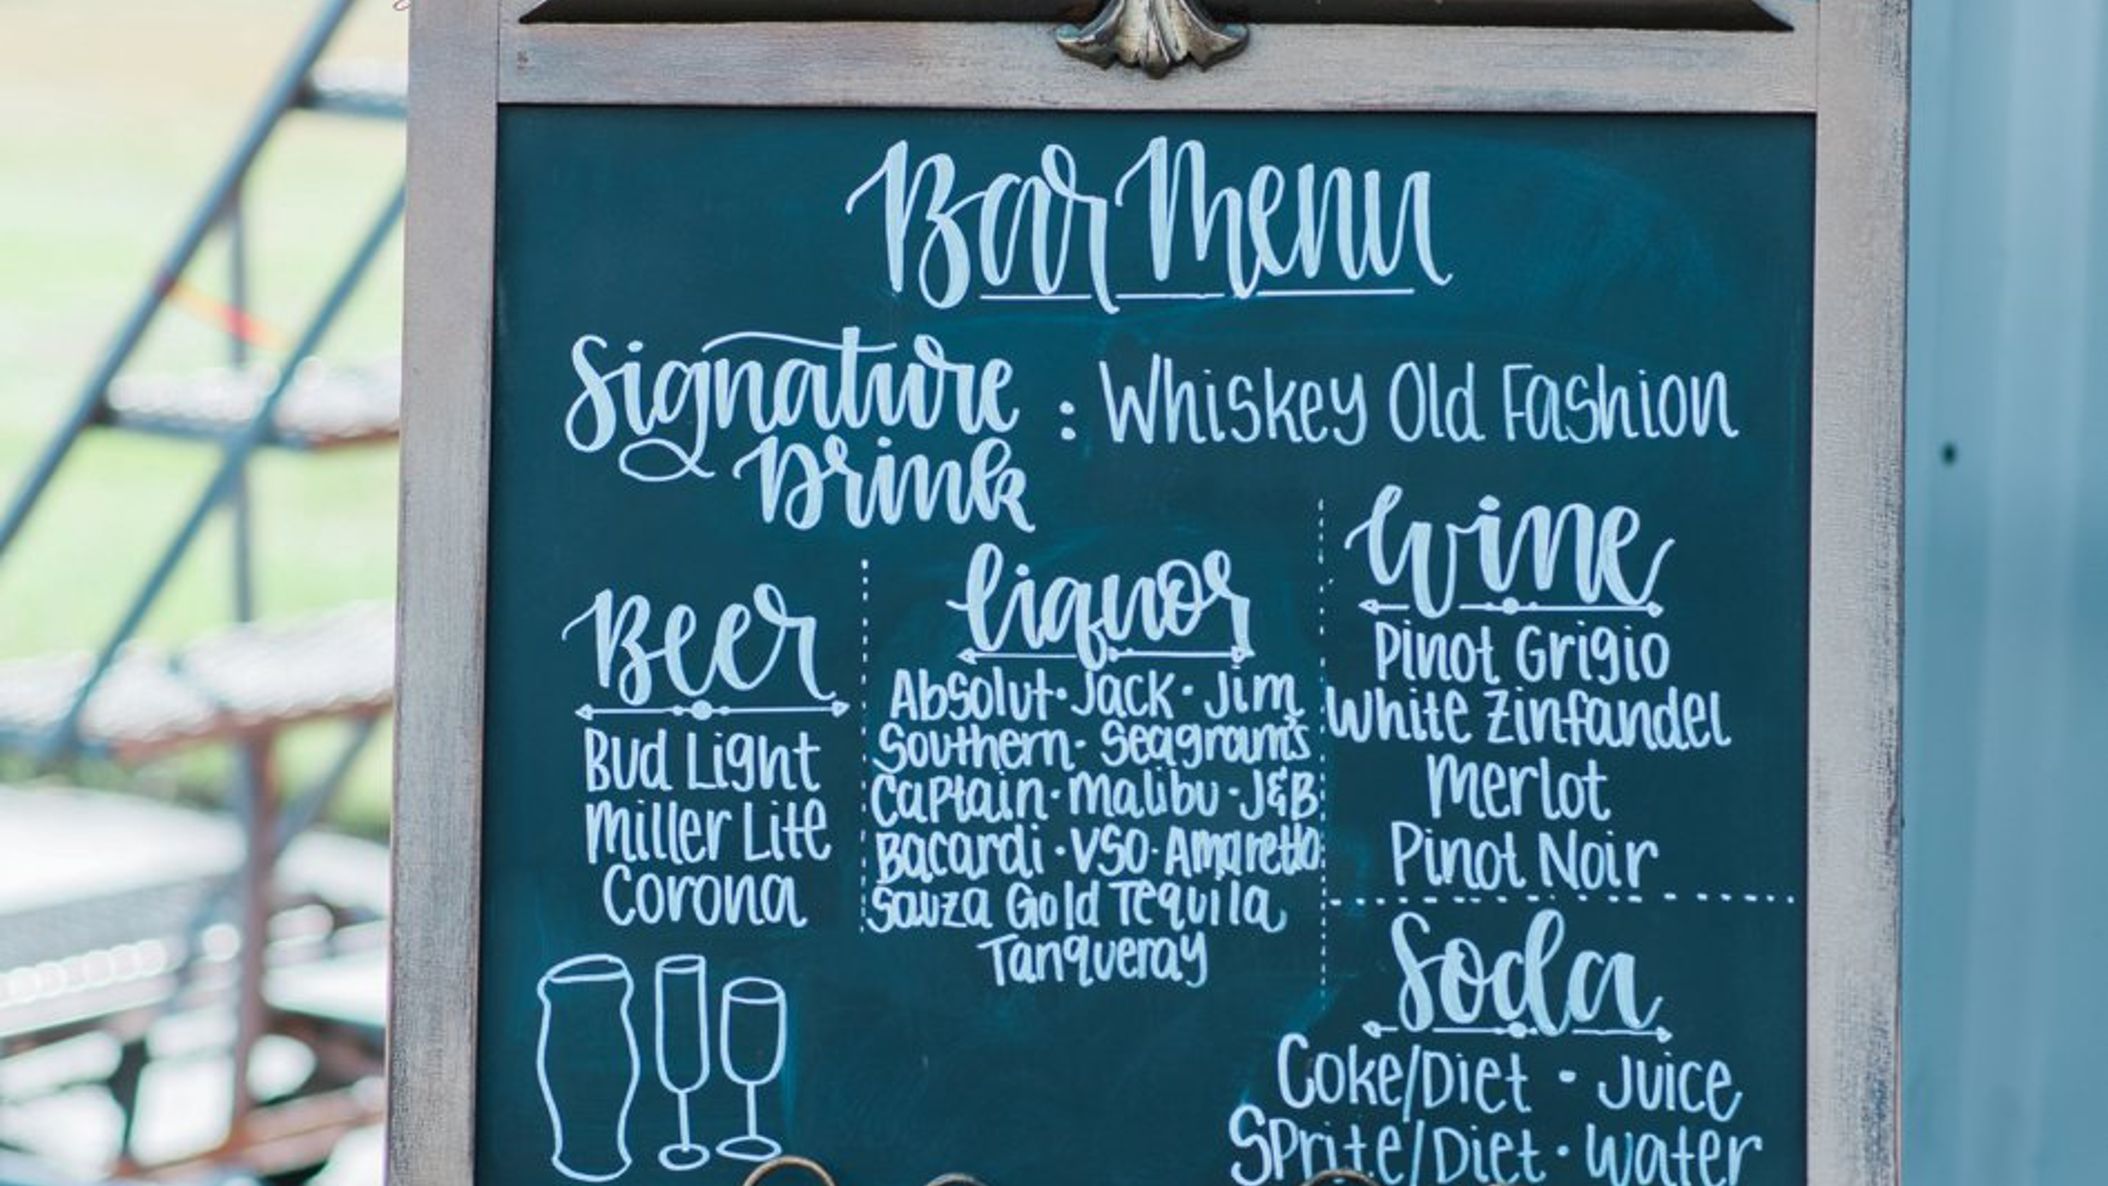 Bar Menu
Signature : Whiskey Old Fashion
Drink
Beer
Bud Light
Miller Lite
Corona
Liquor
Absolut · Jack · Jim
Southern · Seagram's
Captain · Malibu · J&B
Bacardi · VSO · Amaretto
Sauza Gold Tequila
Tanqueray
Wine
Pinot Grigio
White Zinfandel
Merlot
Pinot Noir
Soda
Coke/Diet · Juice
Sprite/Diet · Water